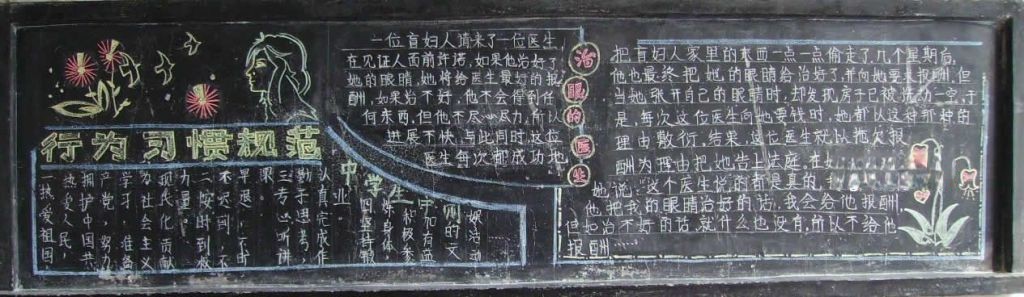 行为习惯规范
中学生
热爱祖国
热爱人民,
拥护中国共
产党,努力
学习,准备
为社会主义
现代化贡献
力量。
二、按时到校
不迟到,不
早退,不旷
课
三、专心听讲
勤于思考,
认真完成作
业
四、坚持锻
炼身体,
治眼的医生
一位盲妇人请来了一位医生,
在见证人面前许诺,如果他治好了
她的眼睛,她将给医生最好的报
酬,如果治不好,他不会得到任
何东西,但他不尽心尽力,所以
进展不快,与此同时这位
医生每次都成功地
把盲妇人家里的东西一点一点偷走了,几个星期后,
他也最终把她的眼睛给治好了,并向她要求报酬,但
当她张开自己的眼睛时,却发现房子已被洗劫一空,于
是,每次这位医生向她要钱时,她都以这种那种的
理由敷衍,结果,这位医生就以拖欠报
酬为理由把她告上法庭,在
她说:"这个医生说的都是真的,
他把我的眼睛治好的话,我会给他报酬
但如治不好的话,就什么也没有,所以不给他
报酬……